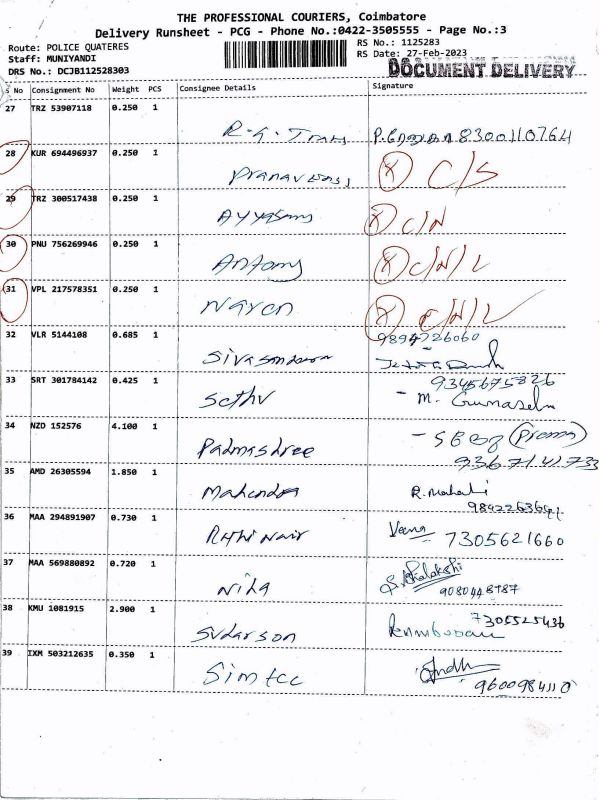 THE PROFESSIONAL COURIERS, Coimbatore
Delivery Runsheet - PCG - Phone No.:0422-3505555 - Page No.:3
Route: POLICE QUATERES
Staff: MUNIYANDI
DRS No.: DCJB112528303
RS No.: 1125283
RS Date: 27-Feb-2023
DOCUMENT DELIVERY
S No Consignment No Weight PCS Consignee Details Signature
27 TRZ 53907118 0.250 1
8300110764
28 KUR 694496937 0.250 1
C/S
29 TRZ 300517438 0.250 1
Ayyasamy C/N
30 PNU 756269946 0.250 1
Antony C/N/L
31 VPL 217578351 0.250 1
Naren
32 VLR 5144108 0.685 1
9894726060
33 SRT 301784142 0.425 1
9345675826
Sethu M. Gunaseln
34 NZD 152576 4.100 1
Padmashree
35 AMD 26305594 1.850 1
Mahendra R. Mahali
36 MAA 294891907 0.730 1
Rithi Nair Veena 7305621660
37 MAA 569880892 0.720 1
Nila
38 KMU 1081915 2.900 1
7305525436
Sudarson
39 IXM 503212635 0.350 1
Simtec
9600984110